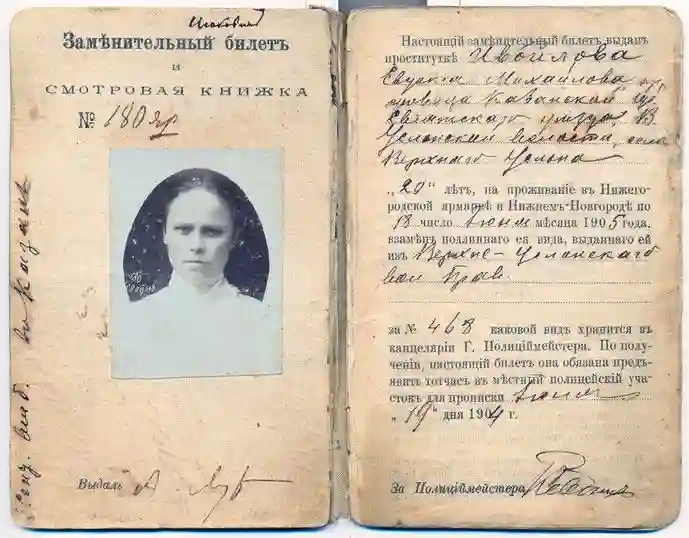 Замѣнительный билетъ
и
СМОТРОВАЯ КНИЖКА
№ 180 яр
Выдалъ
Настоящій замѣнительный билетъ выданъ
проституткѣ Ивойлова
Евдокія Михайлова
Казанской
Свіяжскаго уѣзда, В
Услонской волости, села
Верхняго Услона
„20" лѣтъ, на проживаніе въ Нижего-
родской ярмаркѣ и Нижнемъ-Новгородѣ по
18 число Іюня мѣсяца 1905 года,
взамѣнъ подлиннаго ея вида, выданнаго ей
изъ Верхне-Услонскаго
вол Прав.
за № 468 каковой видъ хранится въ
канцеляріи Г. Полиціймейстера. По полу-
ченіи, настоящій билетъ она обязана предъ-
явить тотчасъ въ мѣстный полицейскій уча-
стокъ для прописки Іюня
„19" дня 1904 г.
За Полиціймейстера